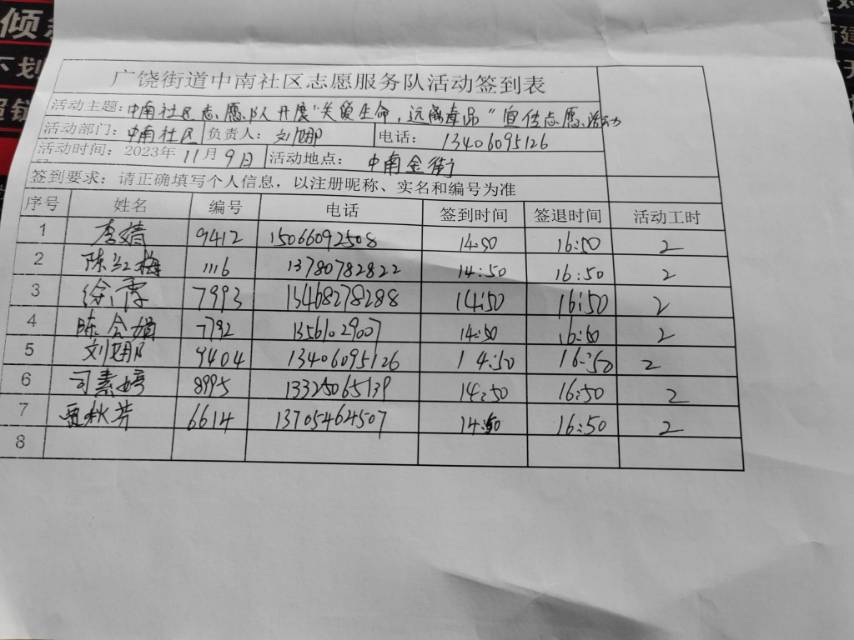 倾
广饶街道中南社区志愿服务队活动签到表
活动主题：中南社区志愿队开展"关爱生命，远离毒品"宣传志愿活动
活动部门：中南社区 负责人：刘娜 电话： 13406095126
活动时间：2023年11月9日 活动地点： 中南金街
签到要求：请正确填写个人信息，以注册昵称、实名和编号为准
序号 姓名 编号 电话 签到时间 签退时间 活动工时
1 李婧 9412 15066092508 14:50 16:50 2
2 陈红梅 1116 13780782822 14:50 16:50 2
3 徐霞 7993 13468278288 14:50 16:50 2
4 陈会娟 7792 13561029007 14:50 16:50 2
5 刘娜 9404 13406095126 14:50 16:50 2
6 司素婷 8995 13325065139 14:50 16:50 2
7 秋芳 6614 13705464507 14:50 16:50 2
8